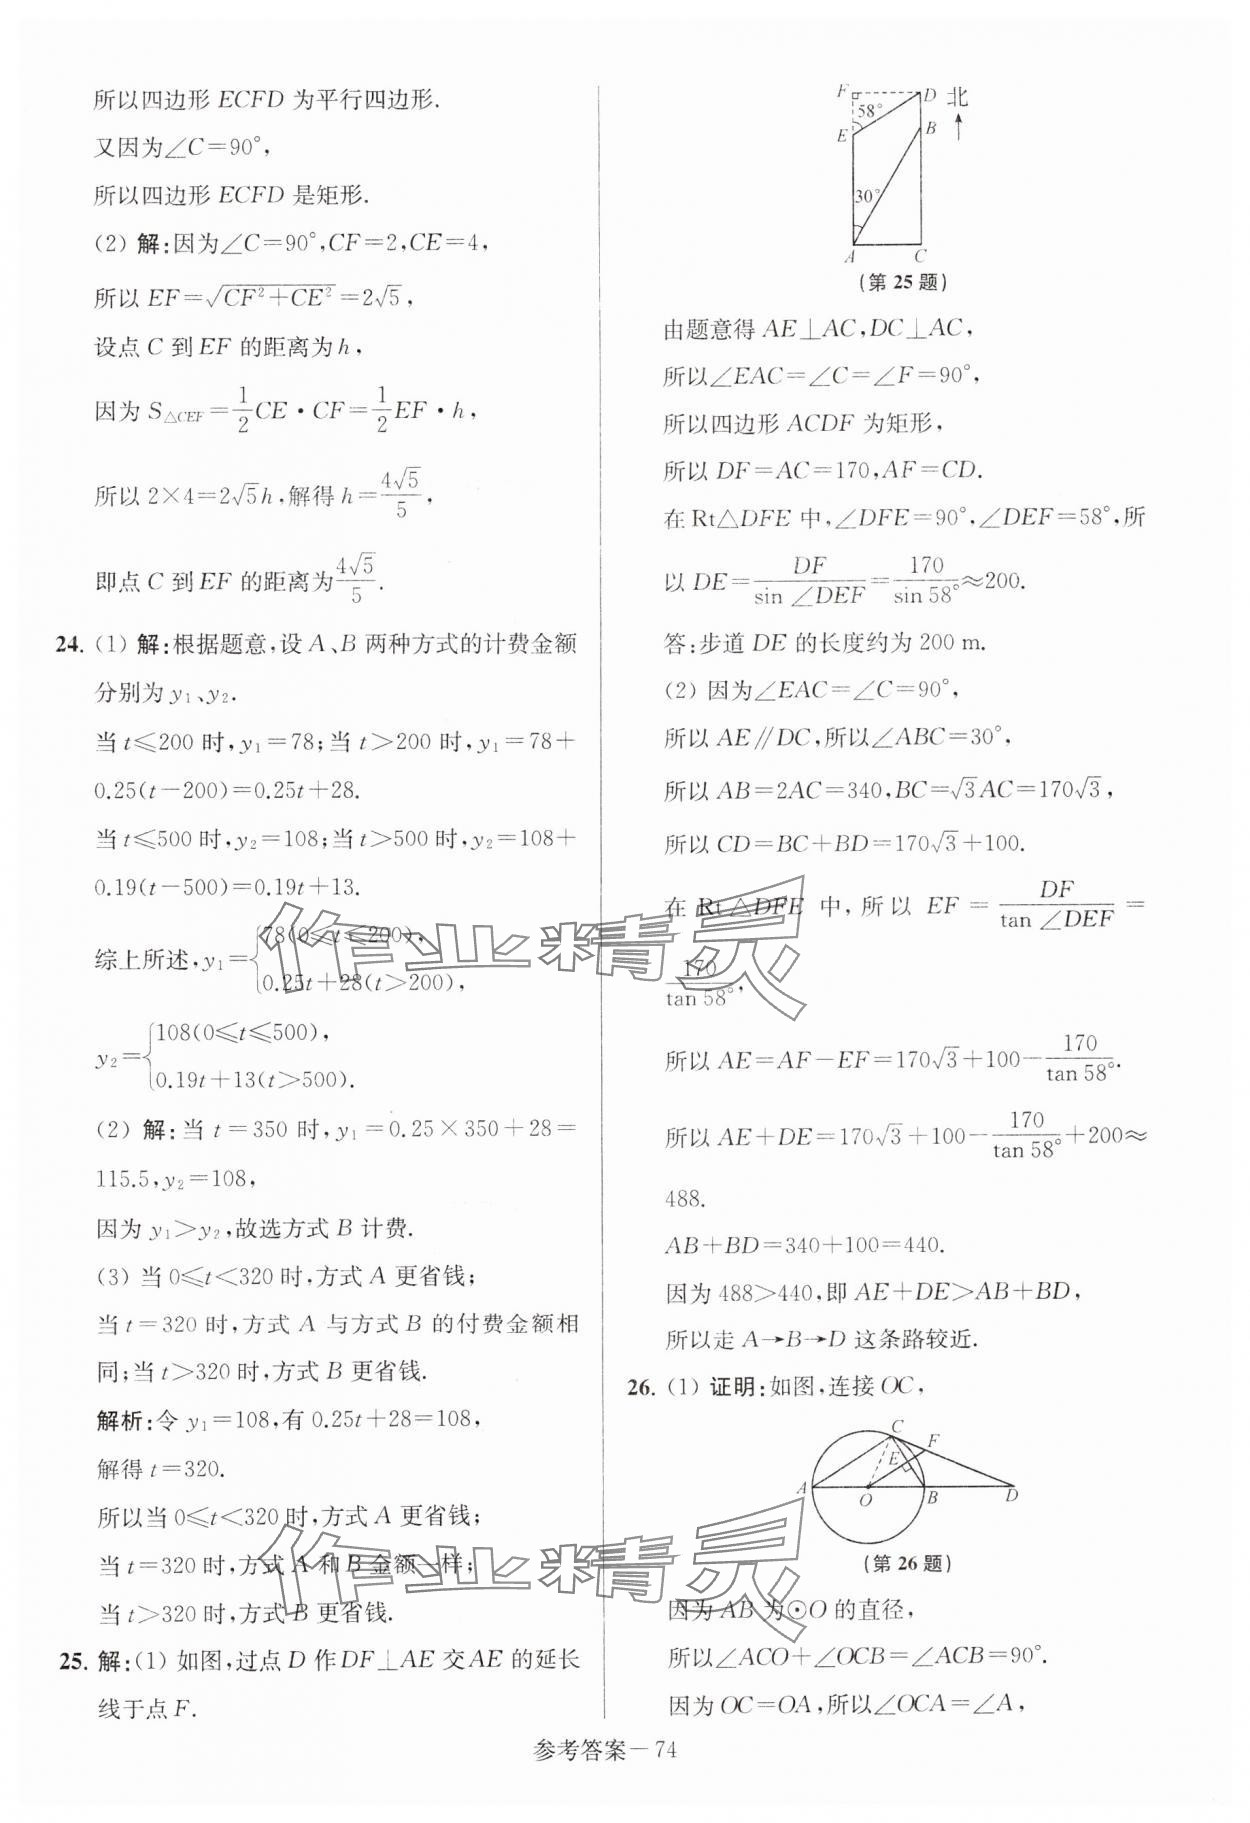 所以四边形 ECFD 为平行四边形.
又因为∠C=90°,
所以四边形 ECFD 是矩形.
(2) 解:因为∠C=90°,CF=2,CE=4,
所以 EF=√(CF²+CE²)=2√5,
设点 C 到 EF 的距离为 h,
因为 S△CEF=1/2 CE·CF=1/2 EF·h,
所以 2×4=2√5h,解得 h=4√5/5,
即点 C 到 EF 的距离为 4√5/5.
24. (1) 解:根据题意,设 A、B 两种方式的计费金额
分别为 y₁、y₂.
当 t≤200 时,y₁=78;当 t>200 时,y₁=78+
0.25(t-200)=0.25t+28.
当 t≤500 时,y₂=108;当 t>500 时,y₂=108+
0.19(t-500)=0.19t+13.
综上所述,y₁={78(0≤t≤200),
0.25t+28(t>200),
y₂={108(0≤t≤500),
0.19t+13(t>500).
(2) 解:当 t=350 时,y₁=0.25×350+28=
115.5,y₂=108,
因为 y₁>y₂,故选方式 B 计费.
(3) 当 0≤t<320 时,方式 A 更省钱;
当 t=320 时,方式 A 与方式 B 的付费金额相
同;当 t>320 时,方式 B 更省钱.
解析:令 y₁=108,有 0.25t+28=108,
解得 t=320.
所以当 0≤t<320 时,方式 A 更省钱;
当 t=320 时,方式 A 和 B 金额一样;
当 t>320 时,方式 B 更省钱.
25. 解:(1) 如图,过点 D 作 DF⊥AE 交 AE 的延长
线于点 F.
F D 北
58°
E B
30°
A C
(第 25 题)
由题意得 AE⊥AC,DC⊥AC,
所以∠EAC=∠C=∠F=90°,
所以四边形 ACDF 为矩形,
所以 DF=AC=170,AF=CD.
在 Rt△DFE 中,∠DFE=90°,∠DEF=58°,所
以 DE=DF/sin∠DEF=170/sin 58°≈200.
答:步道 DE 的长度约为 200 m.
(2) 因为∠EAC=∠C=90°,
所以 AE∥DC,所以∠ABC=30°,
所以 AB=2AC=340,BC=√3AC=170√3,
所以 CD=BC+BD=170√3+100.
在 Rt△DFE 中,所以 EF=DF/tan∠DEF=
170/tan 58°,
所以 AE=AF-EF=170√3+100-170/tan 58°.
所以 AE+DE=170√3+100-170/tan 58°+200≈
488.
AB+BD=340+100=440.
因为 488>440,即 AE+DE>AB+BD,
所以走 A→B→D 这条路较近.
26. (1) 证明:如图,连接 OC,
C F
E
A O B D
(第 26 题)
因为 AB 为⊙O 的直径,
所以∠ACO+∠OCB=∠ACB=90°.
因为 OC=OA,所以∠OCA=∠A,
参考答案-74
作业精灵
作业精灵